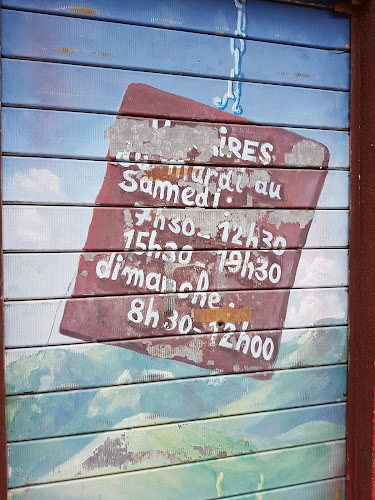 IRES
du mardi au
Samedi.
7h30_12h30
15h30_19h30
dimanche.
8h30_12h00